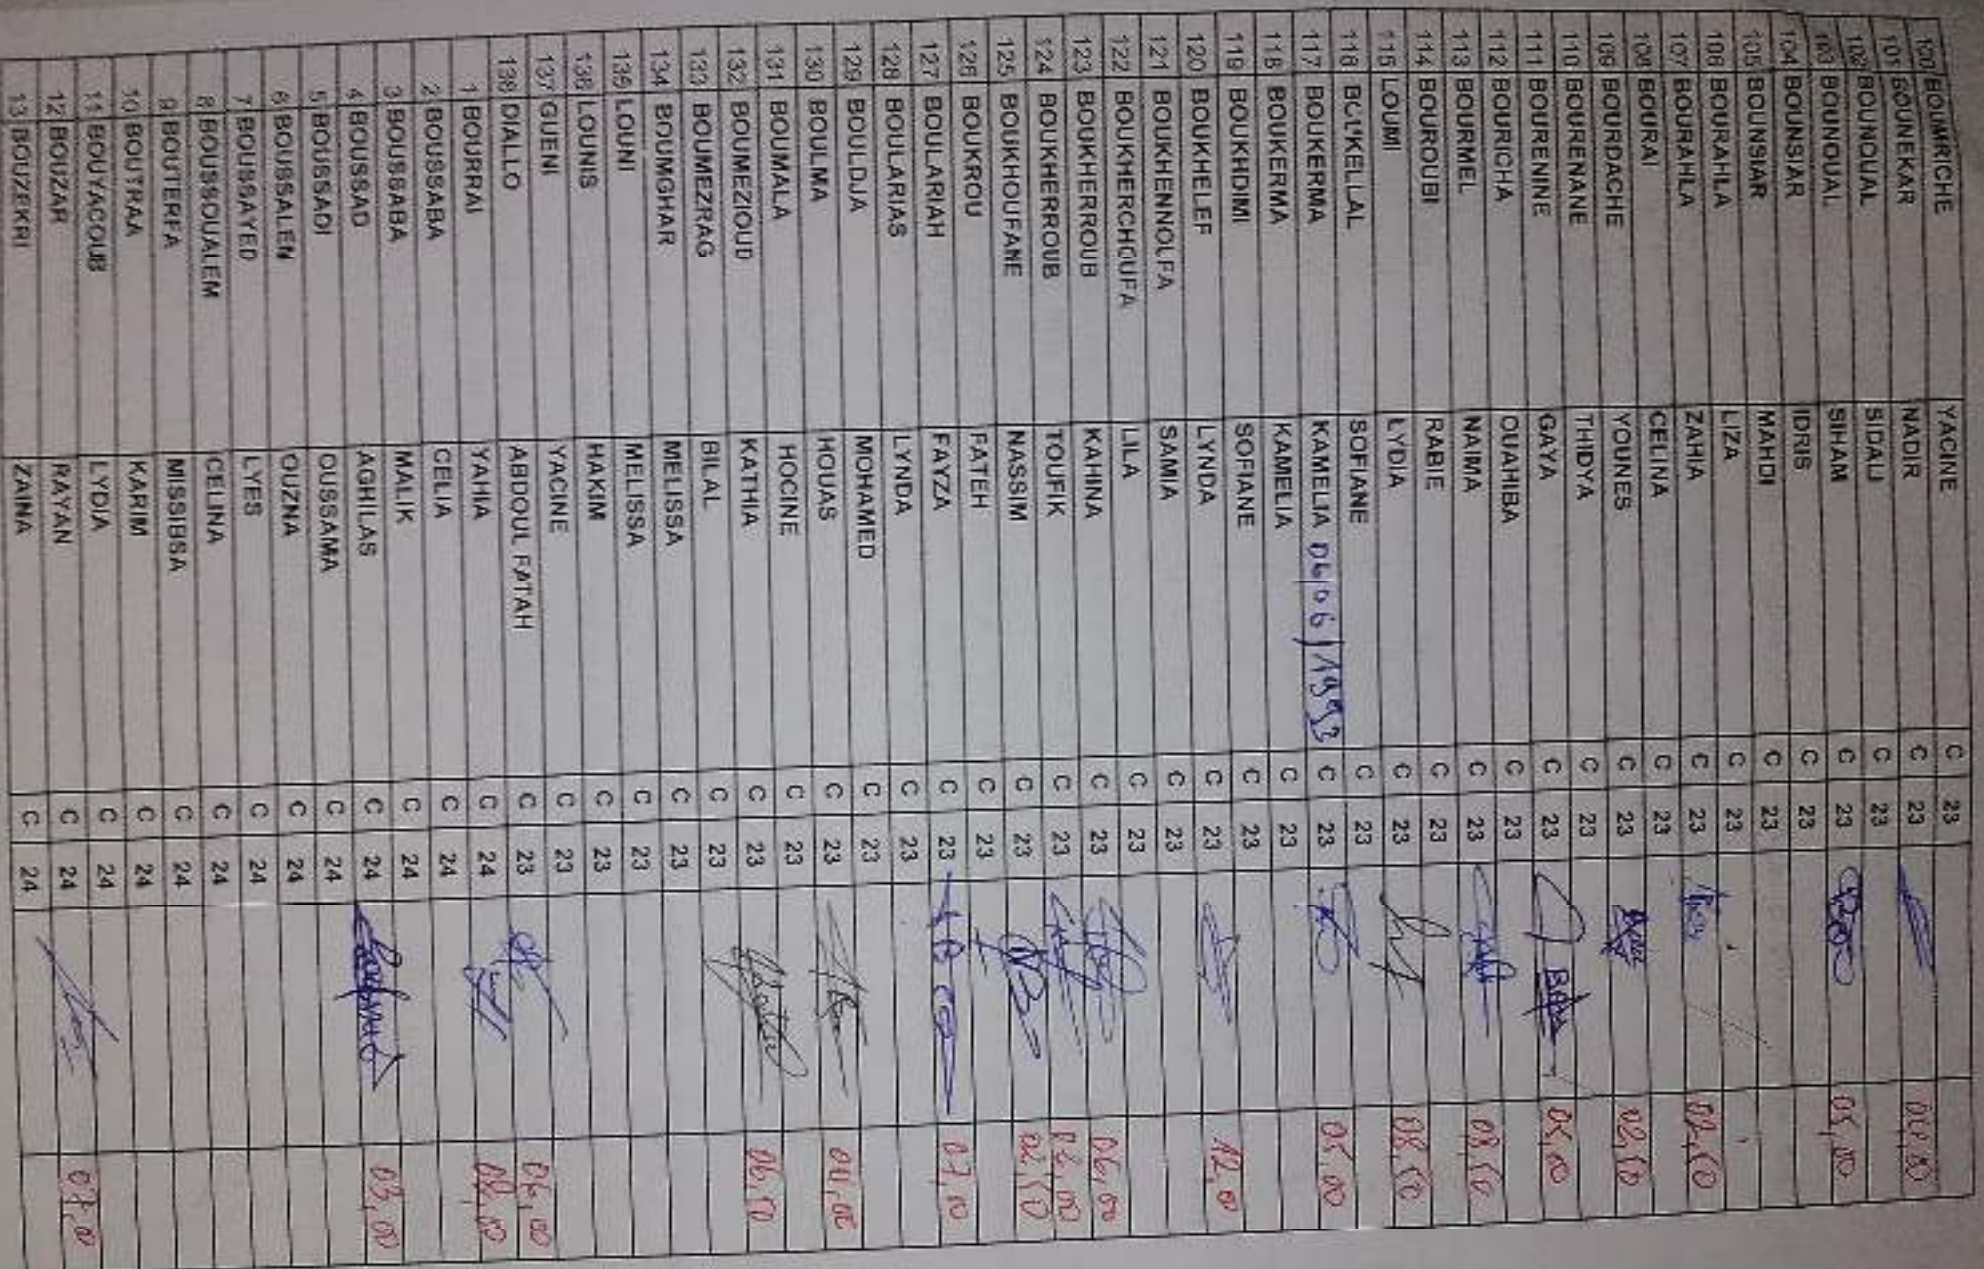 100 BOUMRICHE YACINE C 23
101 BOUNEKAR NADIR C 23
102 BOUNOUAL SIDALI C 23
103 BOUNOUAL SIHAM C 23 05,00
104 BOUNSIAR IDRIS C 23
105 BOUNSIAR MAHDI C 23
106 BOURAHLA LIZA C 23
107 BOURAHLA ZAHIA C 23 02,50
108 BOURAI CELINA C 23
109 BOURDACHE YOUNES C 23 02,50
110 BOURENANE THIDYA C 23
111 BOURENINE GAYA C 23 05,00
112 BOURICHA OUAHIBA C 23
113 BOURMEL NAIMA C 23 08,50
114 BOUROUBI RABIE C 23
115 LOUMI LYDIA C 23 08,50
116 SOFIANE C 23
117 BOUKERMA KAMELIA 06/06/1993 C 23 05,00
118 BOUKERMA KAMELIA C 23
119 BOUKHDIMI SOFIANE C 23
120 BOUKHELEF LYNDA C 23 12,00
121 BOUKHENNOLFA SAMIA C 23
122 BOUKHERCHOUFA LILA C 23
123 BOUKHERROUB KAHINA C 23 06,00
124 BOUKHERROUB TOUFIK C 23
125 BOUKHOUFANE NASSIM C 23 02,50
126 BOUKROU FATEH C 23
127 BOULARIAH FAYZA C 23 07,00
128 BOULARIAS LYNDA C 23
129 BOULDJA MOHAMED C 23
130 BOULMA HOUAS C 23 04,00
131 BOUMALA HOCINE C 23
132 BOUMEZIOUD KATHIA C 23 06,50
133 BOUMEZRAG BILAL C 23
134 BOUMGHAR MELISSA C 23
135 LOUNI MELISSA C 23
136 LOUNIS HAKIM C 23
137 GUENI YACINE C 23
138 DIALLO ABDOUL FATAH C 23 06,00
1 BOURRAI YAHIA C 24
2 BOUSSABA CELIA C 24
3 BOUSSABA MALIK C 24
4 BOUSSAD AGHILAS C 24 03,00
5 BOUSSADI OUSSAMA C 24
6 BOUSSALEN OUZNA C 24
7 BOUSSAYED LYES C 24
8 BOUSSOUALEM CELINA C 24
9 BOUTERFA MISSIBSA C 24
10 BOUTRAA KARIM C 24
11 BOUYACOUB LYDIA C 24
12 BOUZAR RAYAN C 24 07,00
13 BOUZEKRI ZAINA C 24